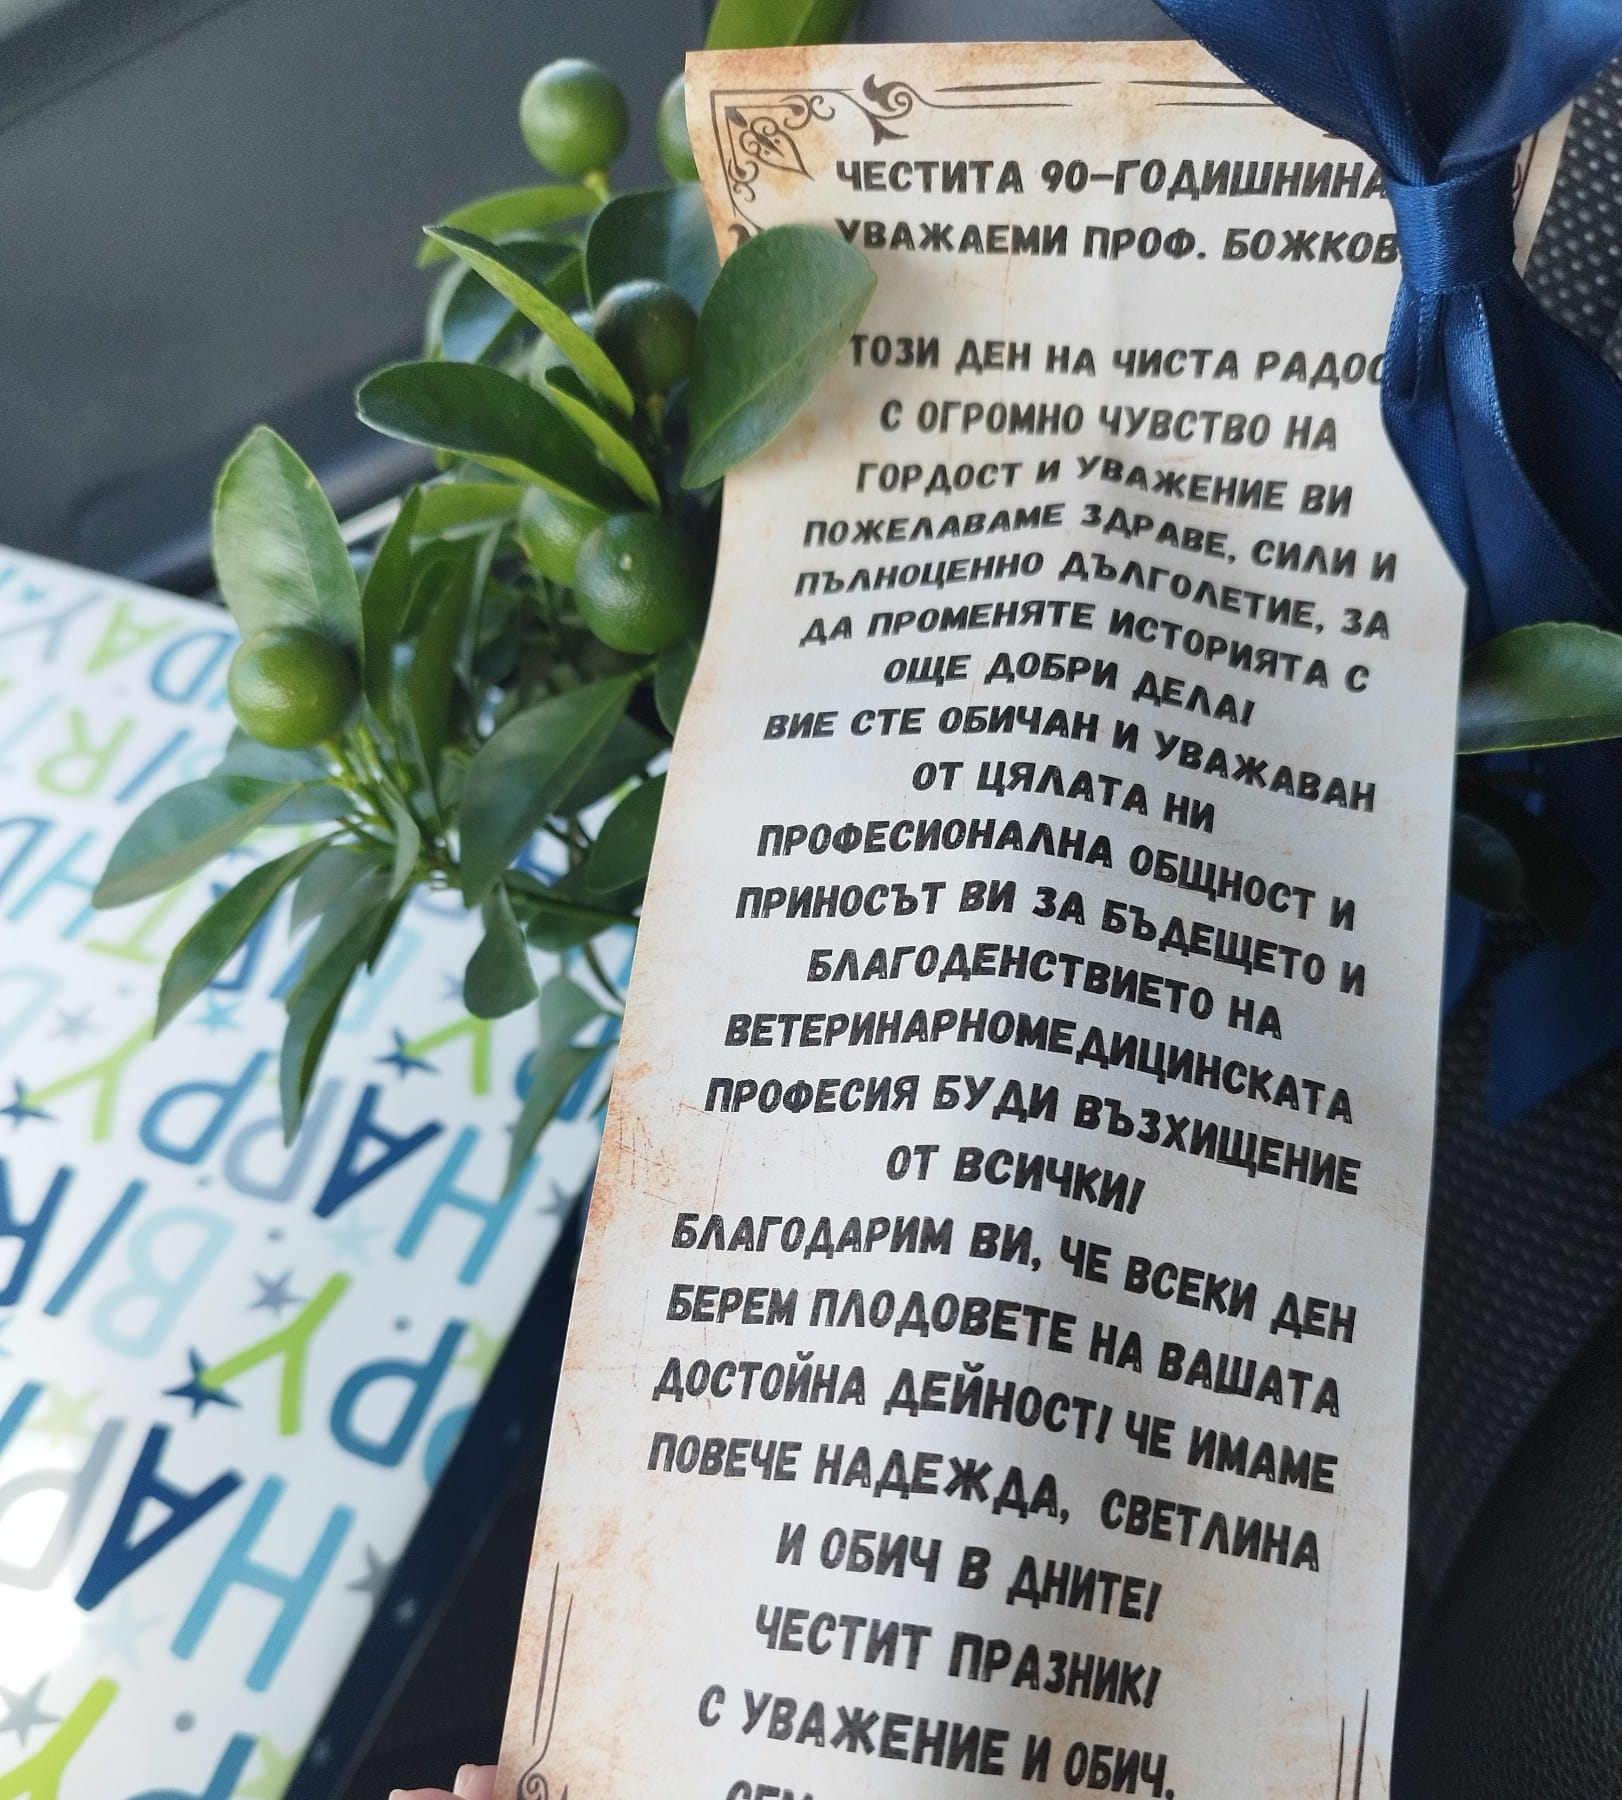 ЧЕСТИТА 90-ГОДИШНИНА
УВАЖАЕМИ ПРОФ. БОЖКОВ
ТОЗИ ДЕН НА ЧИСТА
С ОГРОМНО ЧУВСТВО НА
ГОРДОСТ И УВАЖЕНИЕ ВИ
ПОЖЕЛАВАМЕ ЗДРАВЕ, СИЛИ И
ПЪЛНОЦЕННО ДЪЛГОЛЕТИЕ, ЗА
ДА ПРОМЕНЯТЕ ИСТОРИЯТА С
ОЩЕ ДОБРИ ДЕЛА!
ВИЕ СТЕ ОБИЧАН И УВАЖАВАН
ОТ ЦЯЛАТА НИ
ПРОФЕСИОНАЛНА ОБЩНОСТ И
ПРИНОСЪТ ВИ ЗА БЪДЕЩЕТО И
БЛАГОДЕНСТВИЕТО НА
ВЕТЕРИНАРНОМЕДИЦИНСКАТА
ПРОФЕСИЯ БУДИ ВЪЗХИЩЕНИЕ
ОТ ВСИЧКИ!
БЛАГОДАРИМ ВИ, ЧЕ ВСЕКИ ДЕН
БЕРЕМ ПЛОДОВЕТЕ НА ВАШАТА
ДОСТОЙНА ДЕЙНОСТ! ЧЕ ИМАМЕ
ПОВЕЧЕ НАДЕЖДА, СВЕТЛИНА
И ОБИЧ В ДНИТЕ!
ЧЕСТИТ ПРАЗНИК!
С УВАЖЕНИЕ И ОБИЧ,
HAPPY
HAPPY
BIRTHDAY